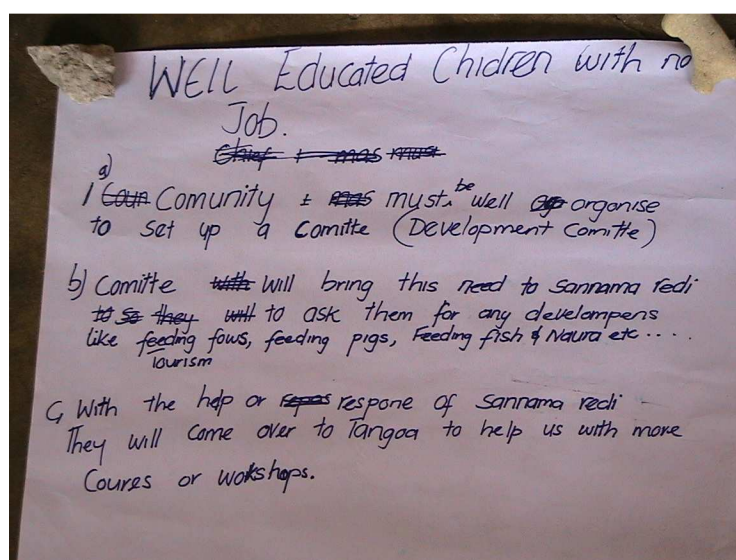 WELL Educated Chidren with no
Job.
Chief + mas must
a)
1 Coun Comunity + mas must be well organise
to set up a comitte (Development Comitte)
b) Comitte with will bring this need to sannama redi
to so they will to ask them for any develompens
like feeding fows, feeding pigs, Feeding fish & Naura etc.....
Tourism
C, With the help or repos respone of sannama redi
They will come over to Tangoa to help us with more
Coures or wokshops.